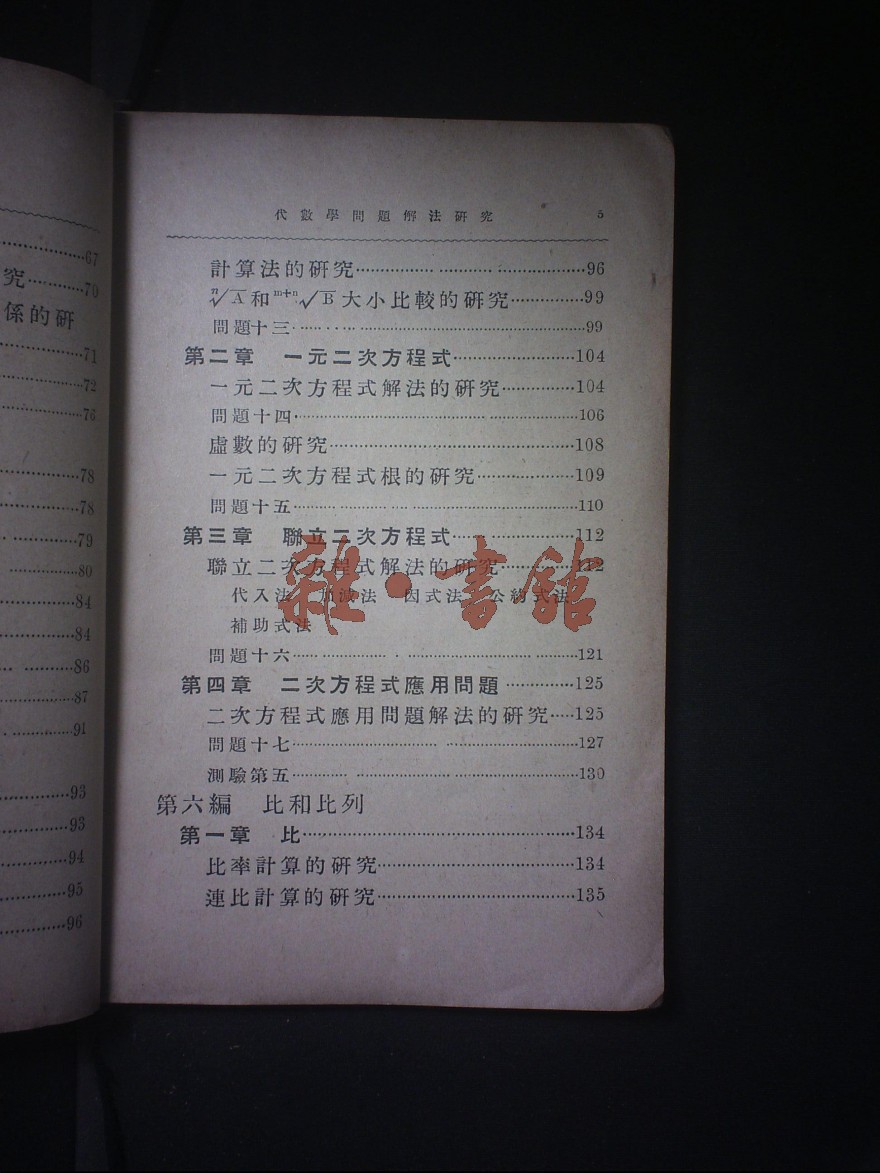 67
究…………70
係的研
71
72
76
78
78
79
80
84
84
86
87
91
93
93
94
95
96
代數學問題解法研究 5
計算法的研究…………96
ⁿ√A和ᵐ⁺ⁿ√B大小比較的研究…………99
問題十三…………99
第二章 一元二次方程式…………104
一元二次方程式解法的研究…………104
問題十四…………106
虛數的研究…………108
一元二次方程式根的研究…………109
問題十五…………110
第三章 聯立二次方程式…………112
聯立二次方程式解法的研究…………112
代入法 加減法 因式法 公約式法
補助式法
問題十六…………121
第四章 二次方程式應用問題…………125
二次方程式應用問題解法的研究……125
問題十七…………127
測驗第五…………130
第六編 比和比列
第一章 比…………134
比率計算的研究…………134
連比計算的研究…………135
雜·書館